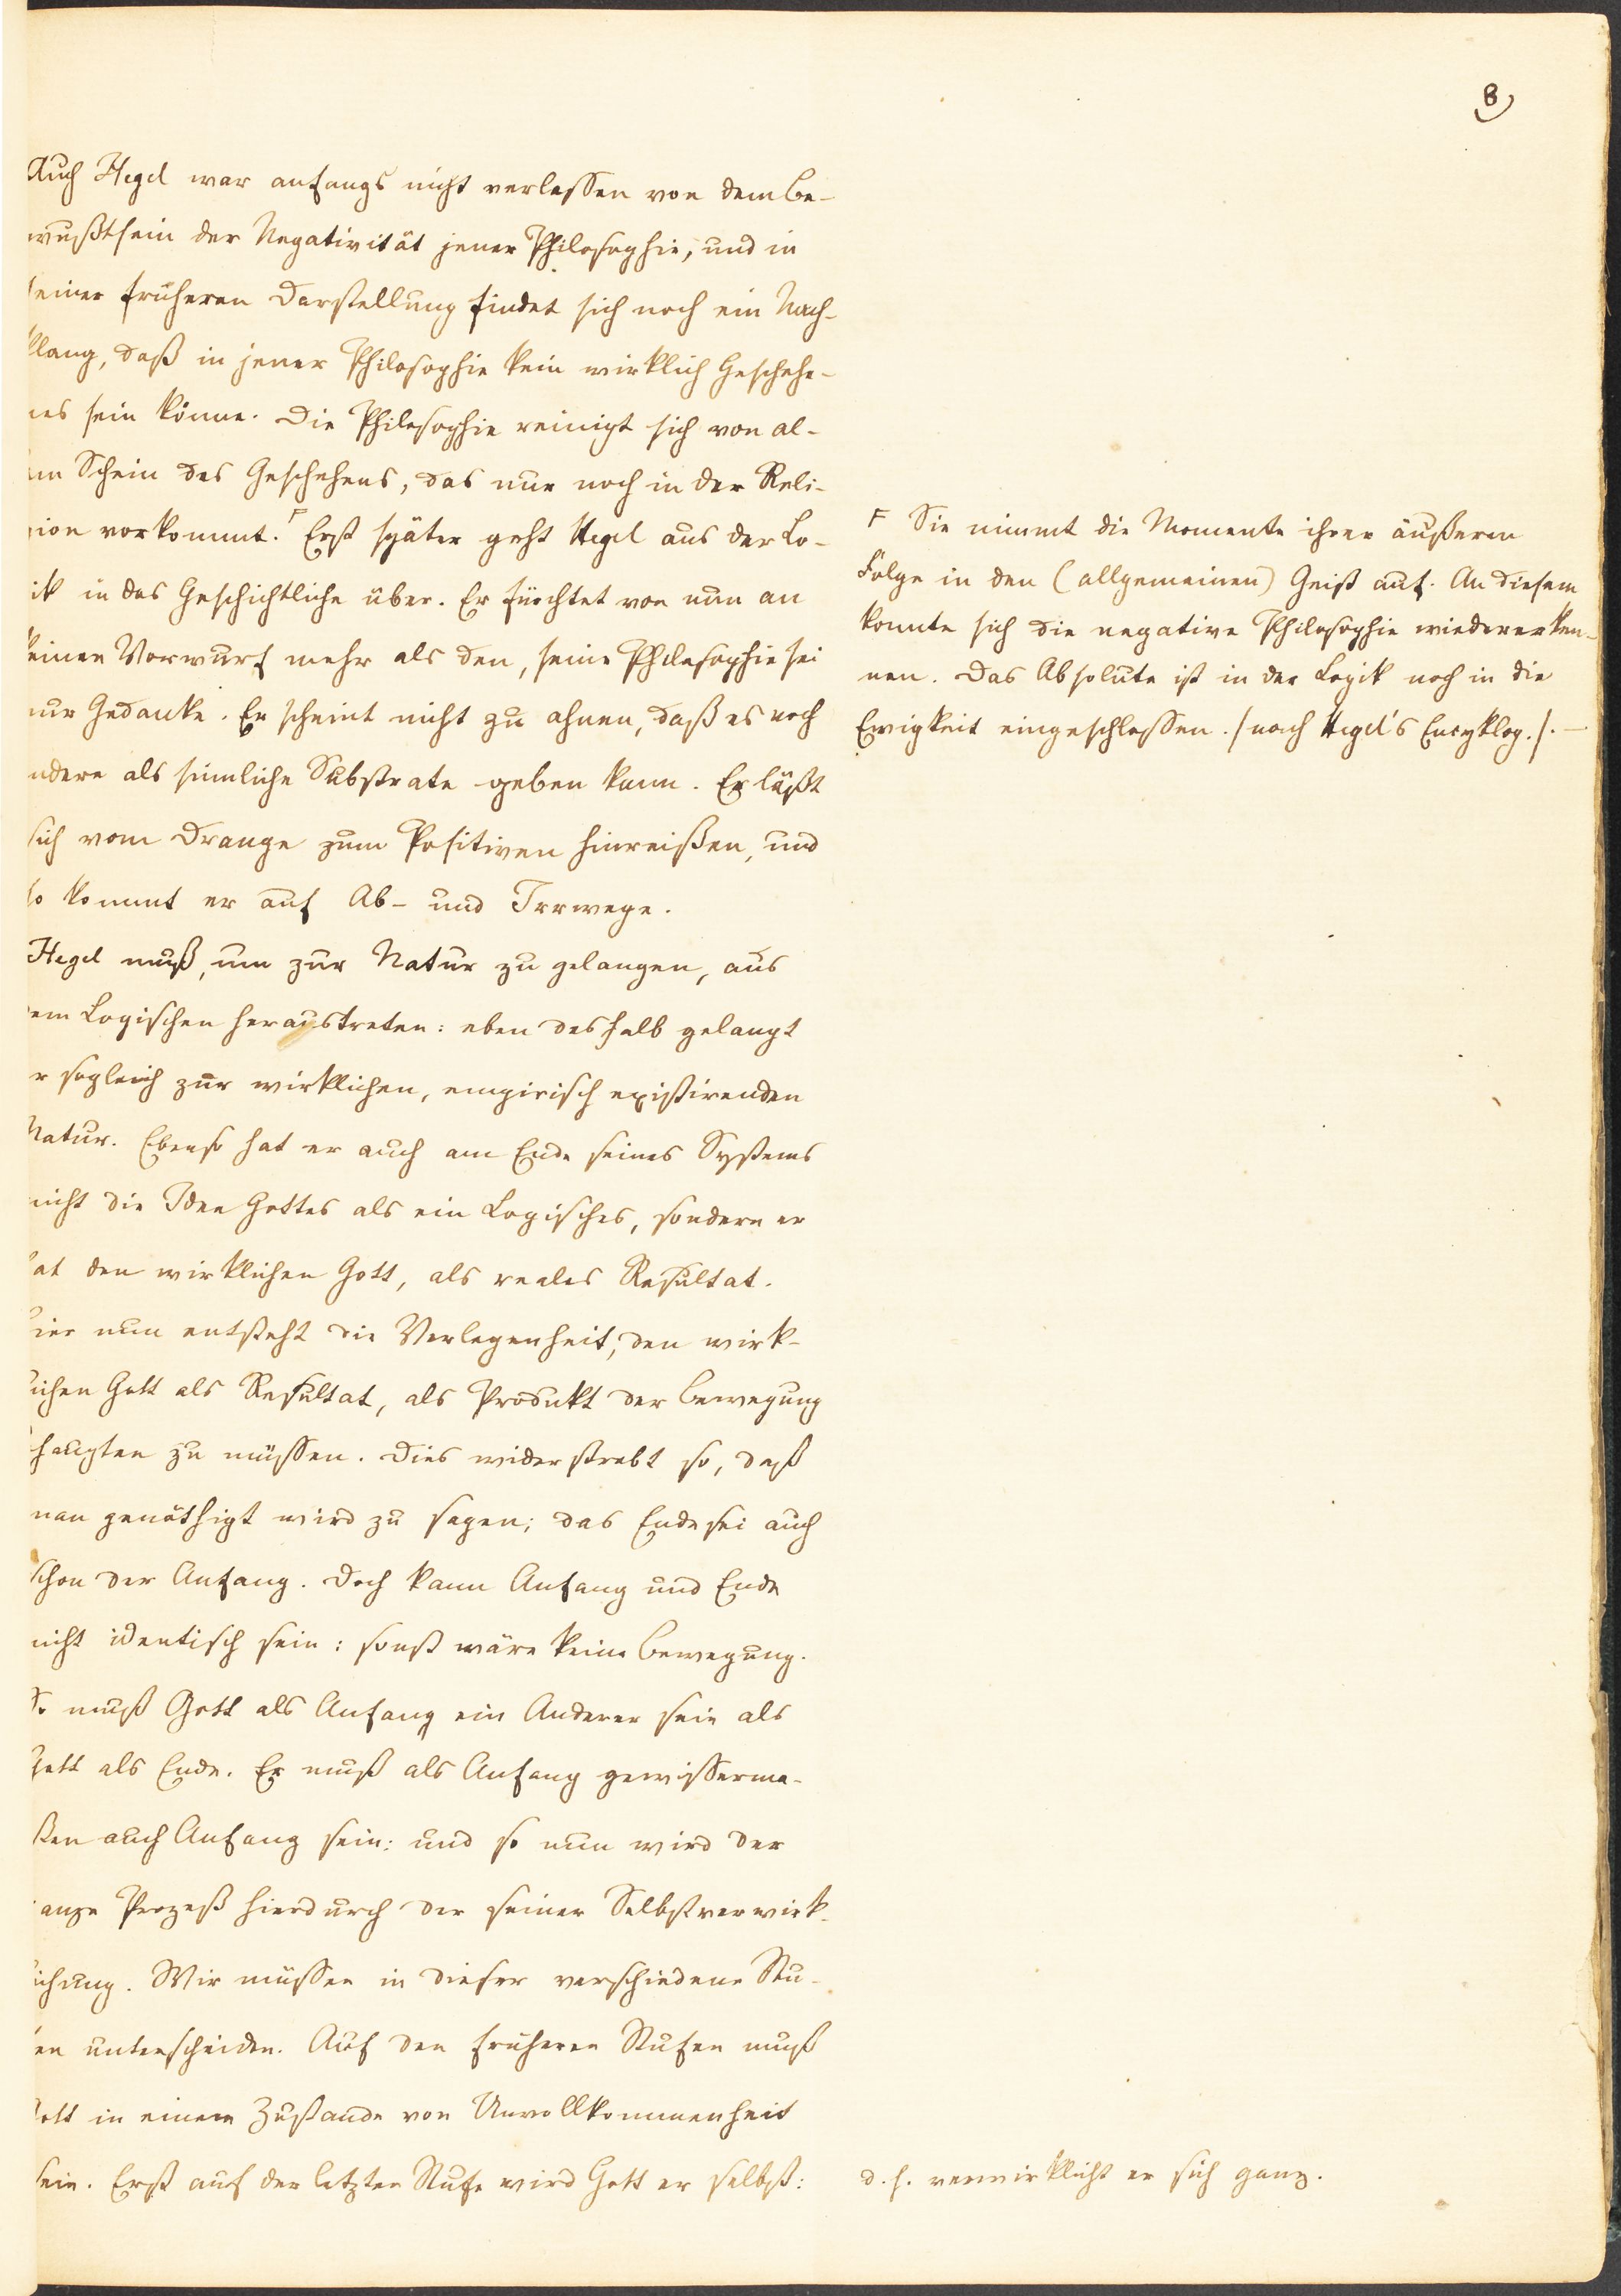 8)
Auch Hegel war anfangs nicht verlassen von dem Be-
wußtsein der Negativität jener Philosophie, und in
seiner früheren Darstellung findet sich noch ein Nach-
klang, daß in jener Philosophie kein wirklich Geschehe-
nes sein könne. Die Philosophie reinigt sich von al-
lem Schein des Geschehens, das nur noch in der Reli-
gion vorkommt. F Erst später geht Hegel aus der Lo-
ik in das Geschichtliche über. Er fürchtet von nun an
keinen Vorwurf mehr als den, seine Philosophie sei
nur Gedanke. Er scheint nicht zu ahnen, daß es noch
ndere als sinnliche Substrate geben kann. Er läßt
sich vom Drange zum Positiven hinreißen, und
so kommt er auf Ab- und Irrwege.
Hegel muß, um zur Natur zu gelangen, aus
dem Logischen heraustreten: eben deshalb gelangt
r sogleich zur wirklichen, empirisch existirenden
Natur. Ebenso hat er auch am Ende seines Systems
nicht die Idee Gottes als ein Logisches, sondern er
hat den wirklichen Gott, als reales Resultat.
Hier nun entsteht die Verlegenheit, den wirk-
lichen Gott als Resultat, als Produkt der Bewegung
haupten zu müssen. Dies widerstrebt so, daß
man genöthigt wird zu sagen; das Ende sei auch
schon der Anfang. Doch kann Anfang und Ende
nicht identisch sein: sonst wäre keine Bewegung.
So muß Gott als Anfang ein Anderer sein als
Gott als Ende. Er muß als Anfang gewisserma-
ßen auch Anfang sein: und so nun wird der
anze Prozeß hierdurch der seiner Selbstverwirk-
lichung. Wir müssen in dieser verschiedene Stu-
fen unterscheiden. Auf den früheren Stufen muß
Gott in einem Zustande von Unvollkommenheit
sein. Erst auf der letzten Stufe wird Gott er selbst:
F Sie nimmt die Momente ihrer äußeren
Folge in den (allgemeinen) Geist auf. An diesem
konnte sich die negative Philosophie wiedererken-
nen. Das Absolute ist in der Logik noch in die
Ewigkeit eingeschlossen. /nach Hegel's Encyklop./. —
d. h. verwirklicht er sich ganz.